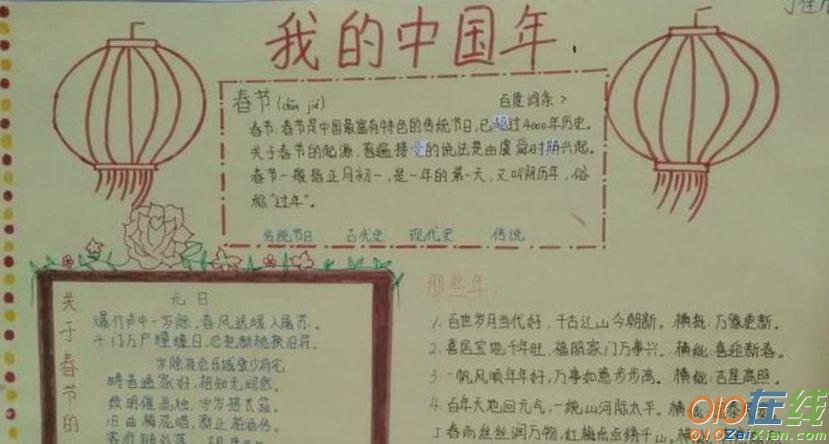 我的中国年
春节(dān jié) 百度词条 >
春节:春节是中国最富有特色的传统节日,已超过4000年历史。
关于春节的起源,普遍接受的说法是由虞舜时期兴起。
春节一般指正月初一,是一年的第一天,又叫阴历年,俗
称"过年"。
传统节日 古代史 现代史 传统
关于春节的
元日
爆竹声中一岁除,春风送暖入屠苏。
千门万户曈曈日,总把新桃换旧符。
岁除夜会乐城张少府宅
畴昔通家好,相知无间然。
续明催画烛,守岁接长筵。
旧曲梅花唱,新正柏酒传。
那些年
1. 百世岁月当代好,千古江山今朝新。横批:万象更新。
2. 喜居宝地千年旺,福照家门万事兴。横批:喜迎新春。
3. 一帆风顺年年好,万事如意步步高。横批:吉星高照。
4. 百年天地回元气,一统山河际太平。横批:
春雨丝丝润万物,红梅点点绣千山。
010在线
010ZaiXian.com